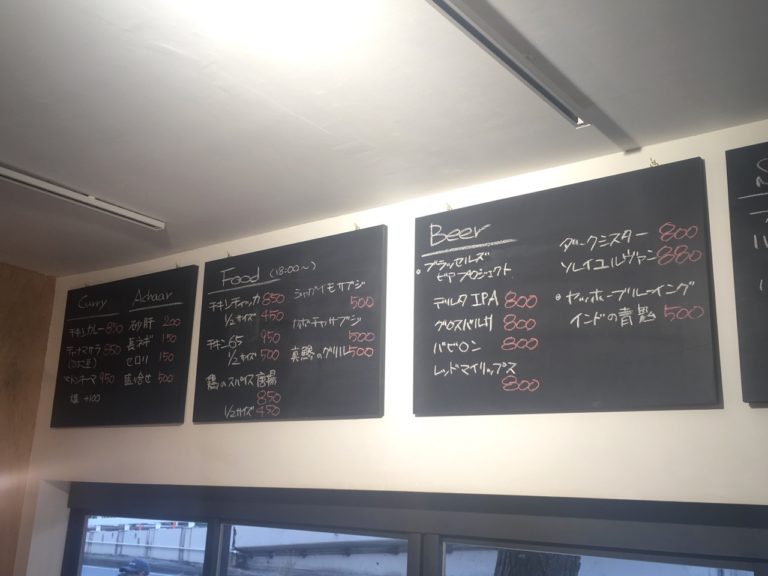 Curry
チキンカレー 850
850
マトンキーマ 950
+100
Achaar
砂肝 200
長ネギ 150
セロリ 150
盛合せ 500
Food (18:00〜)
チキンチャッカ 850
1/2サイズ 450
チキン65 950
1/2サイズ 500
鶏のスパイス
850
1/2サイズ 450
ジャガイモサブジ
500
カボチャサブジ
500
真鯛のグリル 500
Beer
ブラッセルズ
ビアプロジェクト
デルタIPA 800
グロスバルサ 800
バビロン 800
レッドマイリップス
800
ダークミスター 800
ソレイユルヴァン 880
ヤッホーブルーイング
インドの青鬼 500